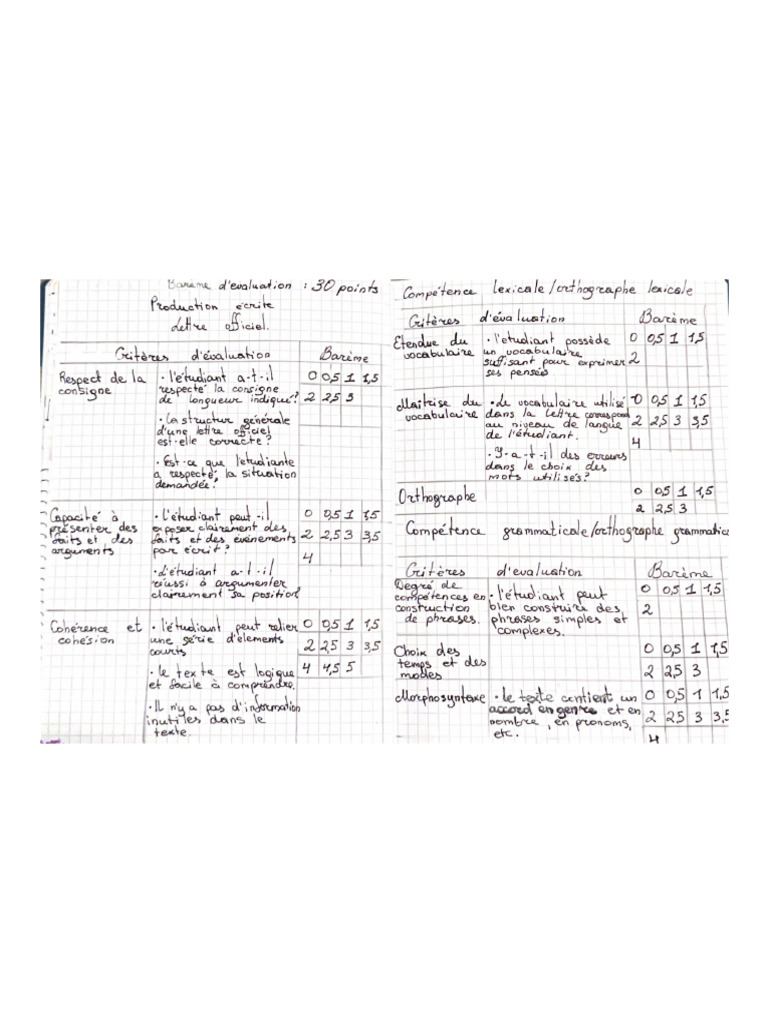 Barème d'évaluation : 30 points
Production écrite
Lettre officiel.
Critères d'évaluation Barème
Respect de la consigne
• l'étudiant a-t-il
respecté la consigne
de longueur indiqué?
• La structur générale
d'une lettre officiel
est-elle correcte?
• Est-ce que l'étudiante
a respecté la situation
demandée?
0 0,5 1 1,5
2 2,5 3
Capacité à
présenter des
faits et des
arguments
• l'étudiant peut-il
exposer clairement des
faits et des événements
par écrit?
• L'étudiant a-t-il
réussi à argumenter
clairement sa position
0 0,5 1 1,5
2 2,5 3 3,5
4
Cohérence et
cohésion
• l'étudiant peut relier
une série d'élements
courts
• le texte est logique
et facile à comprendre.
• Il n'y a pas d'information
inutiles dans le
texte.
0 0,5 1 1,5
2 2,5 3 3,5
4 4,5 5
Compétence lexicale/orthographe lexicale
Critères d'évaluation Barème
Etendue du
vocabulaire
• l'étudiant possède
un vocabulaire
suffisant pour exprimer
ses pensées
0 0,5 1 1,5
2
Maitrise du
vocabulaire
• Le vocabulaire utilisé
dans la lettre correspond
au niveau de langue
de l'étudiant.
• Y-a-t-il des erreurs
dans le choix des
mots utilisés?
0 0,5 1 1,5
2 2,5 3 3,5
4
Orthographe
0 0,5 1 1,5
2 2,5 3
Compétence grammaticale/orthographe grammatic
Critères d'evaluation Barème
Degré de
compétences en
construction
de phrases.
• l'étudiant peut
bien construire des
phrases simples et
complexes.
0 0,5 1 1,5
2
Choix des
temps et des
modes
0 0,5 1 1,5
2 2,5 3
Morphosyntaxe
• le texte contient un
accord en genre et en
nombre, en pronoms,
etc.
0 0,5 1 1,5
2 2,5 3 3,5
4